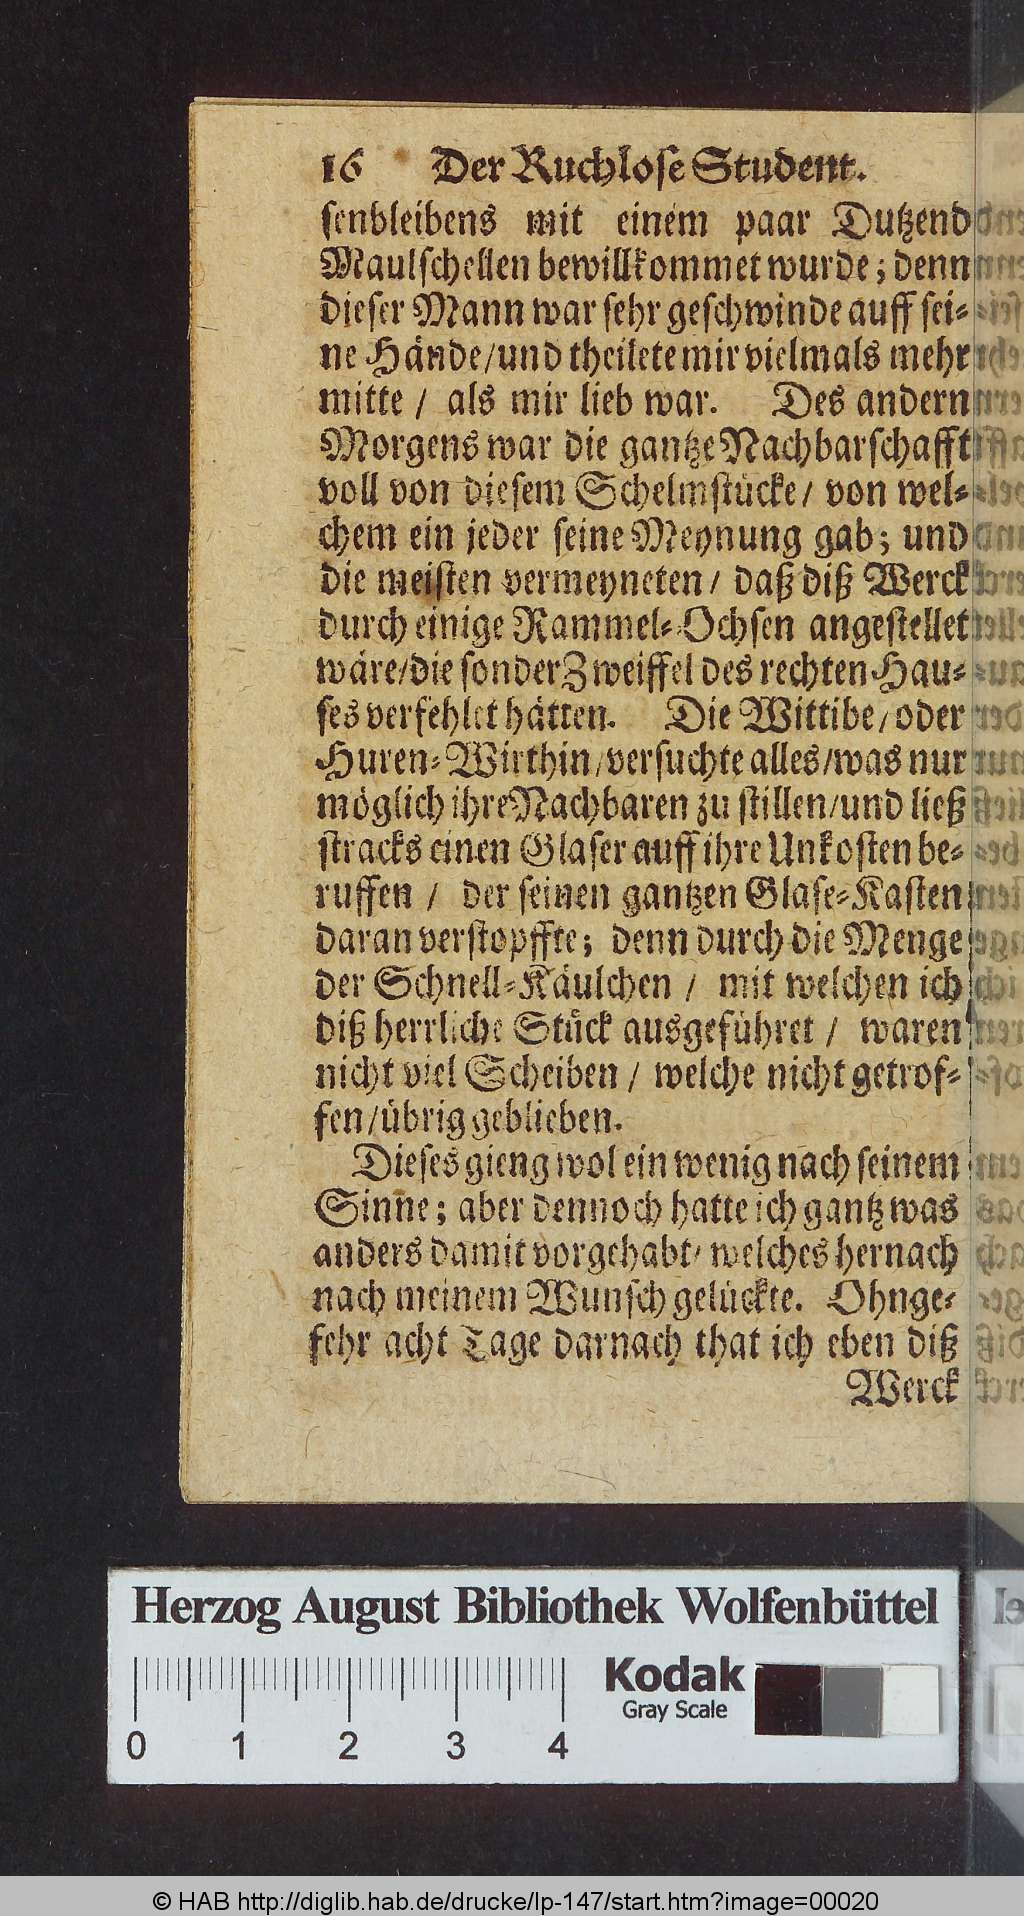 16 Der Ruchlose Student.
senbleibens mit einem paar Dutzend
Maulschellen bewillkommet wurde; denn
dieser Mann war sehr geschwinde auff sei-
ne Hände/und theilete mir vielmals mehr
mitte / als mir lieb war. Des andern
Morgens war die gantze Nachbarschafft
voll von diesem Schelmstücke/ von wel-
chem ein jeder seine Meynung gab; und
die meisten vermeyneten/ daß diß Werck
durch einige Rammel-Ochsen angestellet
wäre/die sonder Zweiffel des rechten Hau-
ses verfehlet hätten. Die Wittibe/oder
Huren-Wirthin/versuchte alles/was nur
möglich ihre Nachbaren zu stillen/und ließ
stracks einen Glaser auff ihre Unkosten be-
ruffen / der seinen gantzen Glase-Kasten
daran verstopffte; denn durch die Menge
der Schnell-Käulchen / mit welchen ich
diß herrliche Stück ausgeführet / waren
nicht viel Scheiben / welche nicht getrof-
fen/übrig geblieben.
Dieses gieng wol ein wenig nach seinem
Sinne; aber dennoch hatte ich gantz was
anders damit vorgehabt/ welches hernach
nach meinem Wunsch gelückte. Ohnge-
fehr acht Tage darnach that ich eben diß
Werck
Herzog August Bibliothek Wolfenbüttel
Kodak
Gray Scale
0 1 2 3 4
© HAB http://diglib.hab.de/drucke/lp-147/start.htm?image=00020